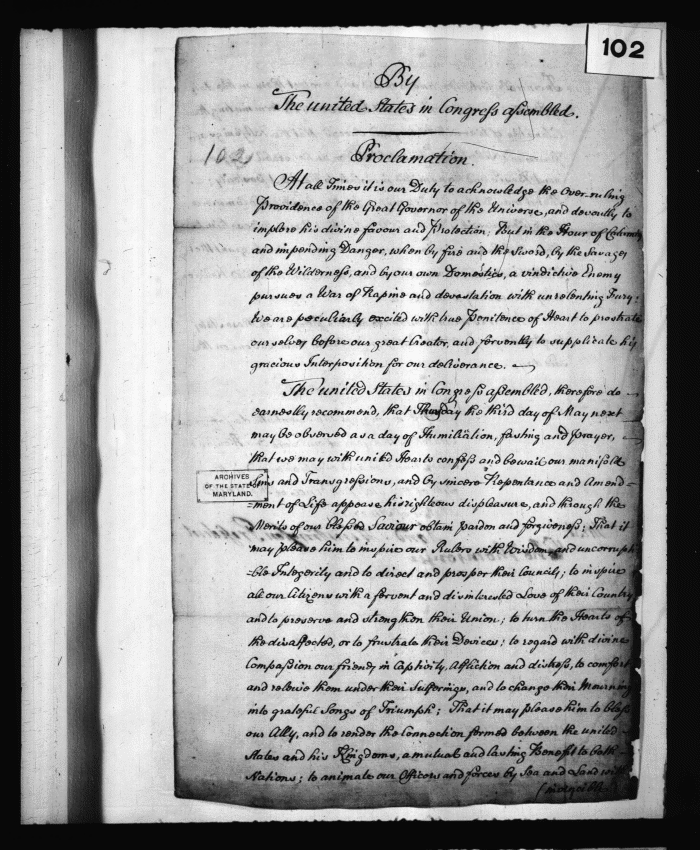 102
By
The united States in Congress assembled.
102
Proclamation.
At all Times it is our Duty to acknowledge the Over-ruling
Providence of the Great Governor of the Universe, and devoutly to
implore his divine favour and Protection; But in the Hour of Calamity
and impending Danger, when by fire and the Sword, by the Savages
of the Wilderness, and by our own Domestics, a vindictive Enemy
pursues a War of Rapine and devastation with unrelenting Fury;
we are peculiarly excited with true Penitence of Heart to prostrate
ourselves before our great Creator, and fervently to supplicate his
gracious Interposition for our deliverance.
The united States in Congress assembled, therefore do
earnestly recommend, that Thursday the third day of May next
may be observed as a day of Humiliation, fasting and prayer,
that we may with united Hearts confess and bewail our manifold
ARCHIVES
OF THE STATE OF
MARYLAND.
Sins and Transgressions, and by sincere Repentance and Amend=
=ment of Life appease his righteous displeasure, and through the
Merits of our blessed Saviour obtain pardon and forgiveness; That it
may please him to inspire our Rulers with Wisdom and uncorrupti
=ble Integrity and to direct and prosper their Councils; to inspire
all our Citizens with a fervent and disinterested Love of their Country
and to preserve and strengthen their Union; to turn the Hearts of
the disaffected, or to frustrate their Devices; to regard with divine
Compassion our friends in Captivity, Affliction and distress, to comfort
and relieve them under their Sufferings, and to change their Mourning
into grateful Songs of Triumph; That it may please him to bless
our Ally, and to render the Connection formed between the united
States and his Kingdoms, a mutual and lasting Benefit to both
Nations; to animate our Officers and forces by Sea and Land with
(invincible